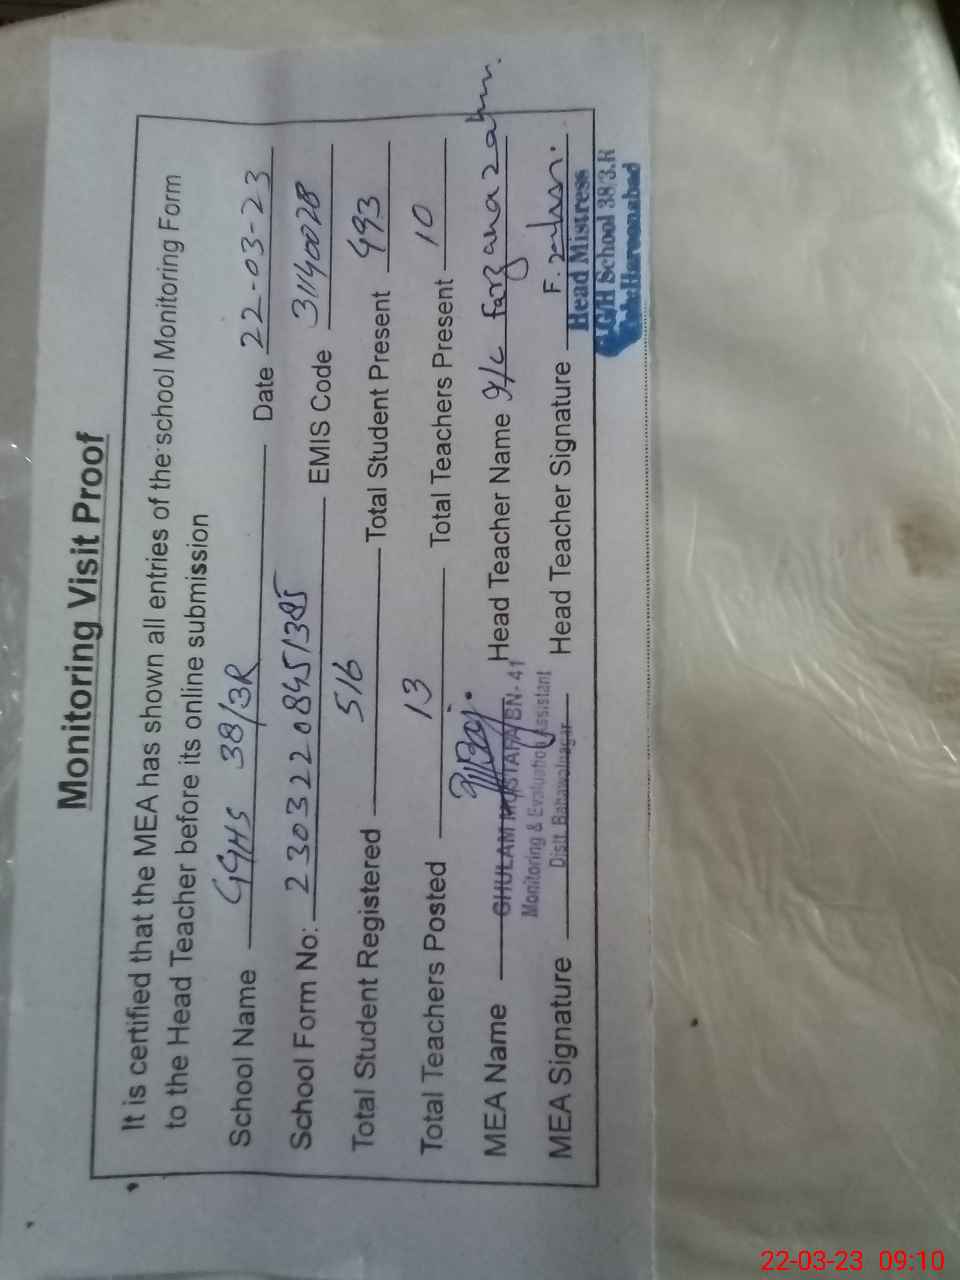 Monitoring Visit Proof
It is certified that the MEA has shown all entries of the school Monitoring Form
to the Head Teacher before its online submission
School Name GGHS 38/3R Date 22-03-23
School Form No: 23032208451385 EMIS Code 31140028
Total Student Registered 516 Total Student Present 493
Total Teachers Posted 13 Total Teachers Present 10
MEA Name GHULAM MUSTAFA BN-41 Head Teacher Name I/c Farzana
Monitoring & Evaluation Assistant
Distt. Bahawalnagar
MEA Signature Head Teacher Signature F.
Head Mistress
School 38/3.R
Haroonabad
22-03-23 09:10